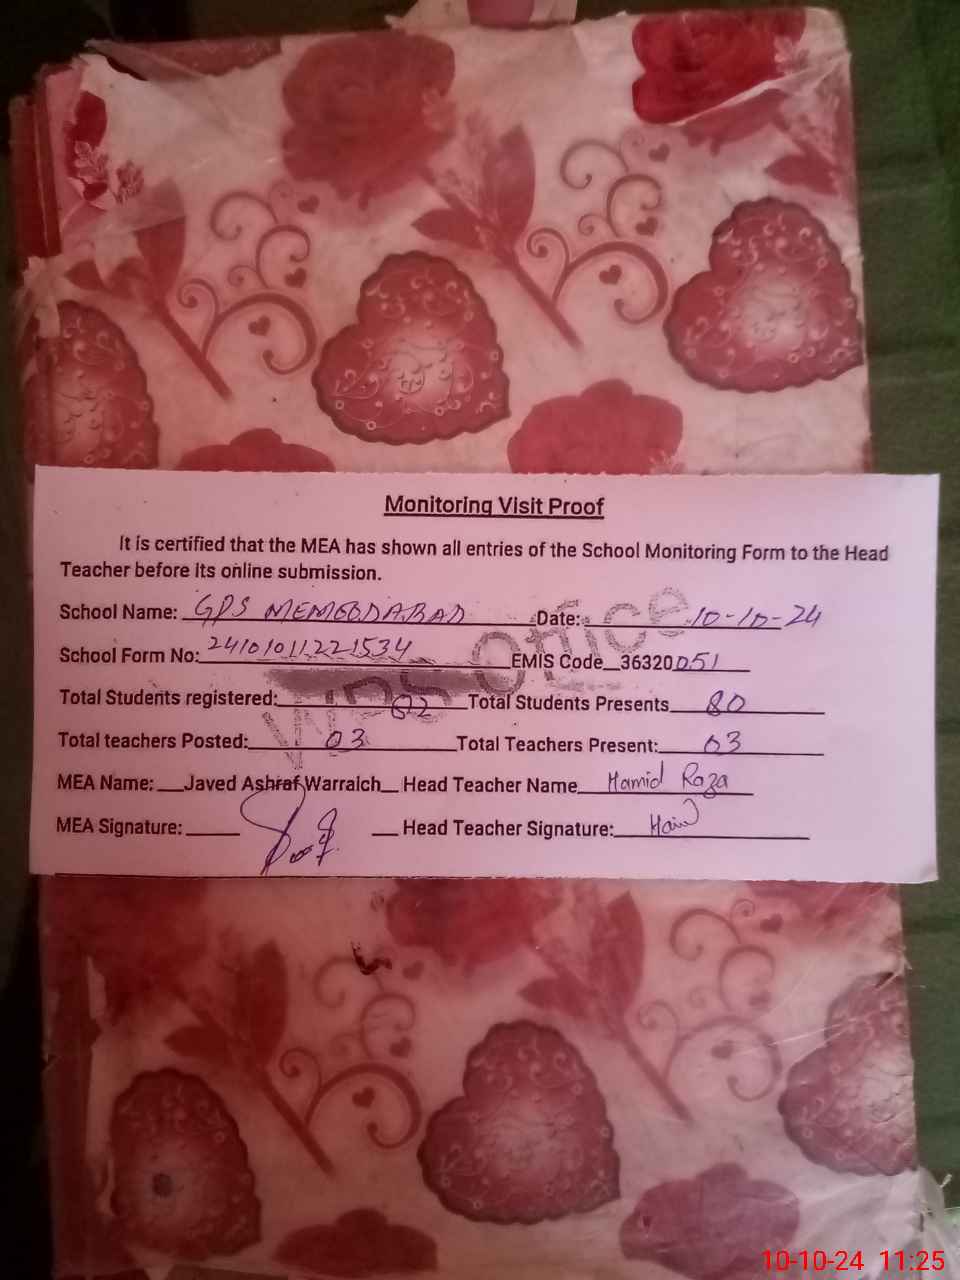 Monitoring Visit Proof
It is certified that the MEA has shown all entries of the School Monitoring Form to the Head
Teacher before Its online submission.
School Name: GPS MEMOODABAD Date: 10-10-24
School Form No: 2410101122 1534 EMIS Code 36320051
Total Students registered: Total Students Presents 80
Total teachers Posted: 03 Total Teachers Present: 03
MEA Name: Javed Ashraf Warraich Head Teacher Name Hamid Raza
MEA Signature: Head Teacher Signature:
WPS Office
10-10-24 11:25